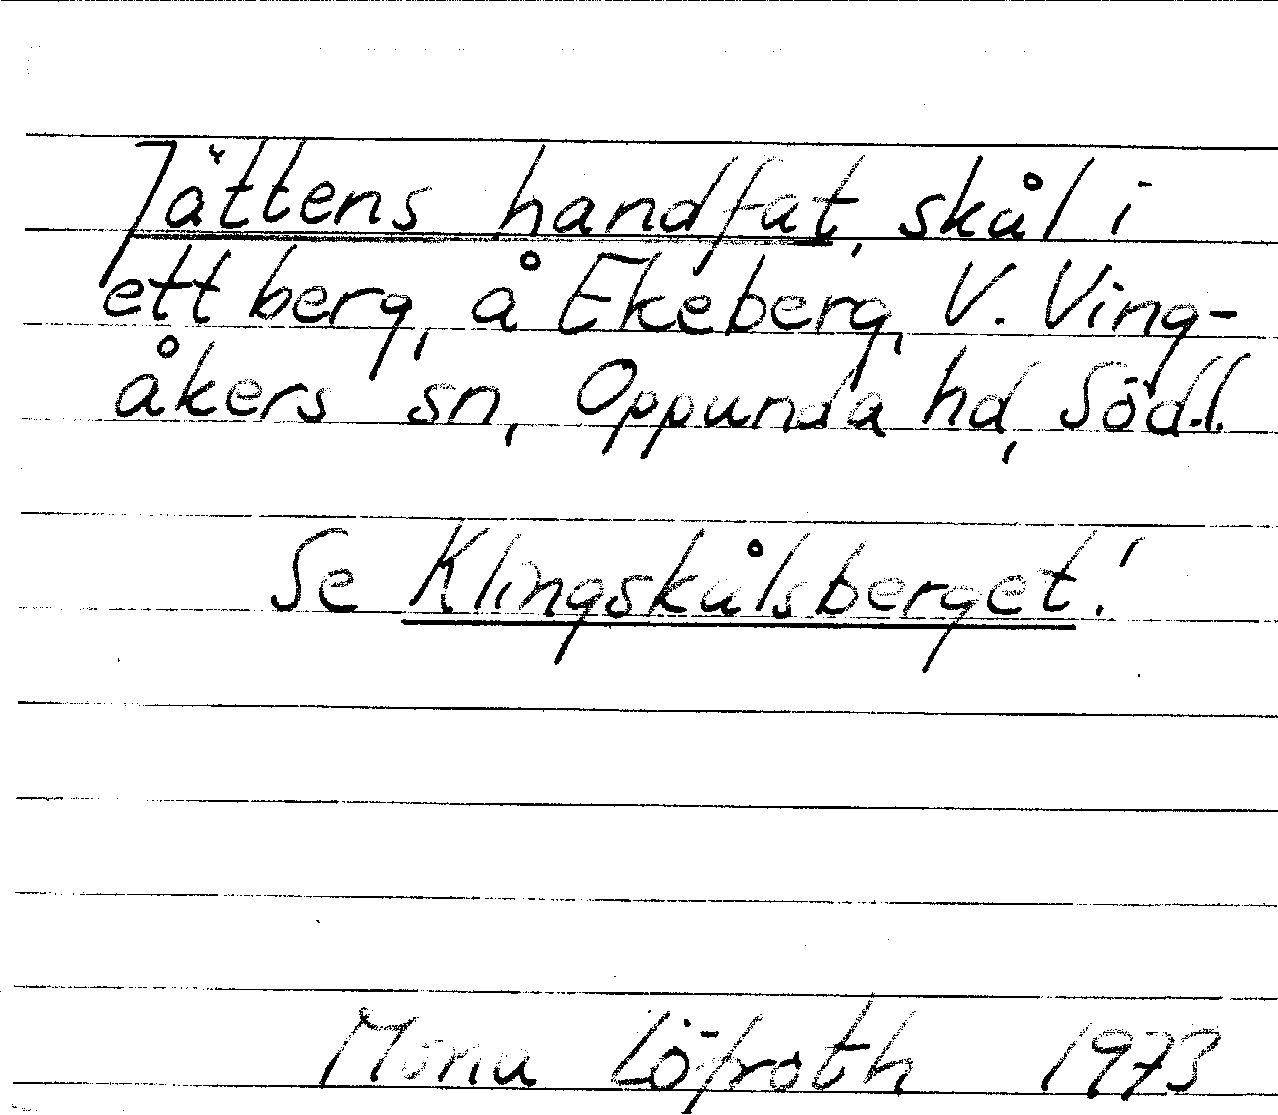 Jättens handfat, skål i
ett berg, å Ekeberg, V. Ving-
åkers sn, Oppunda hd, Södl.
Se Klingskålsberget!
Mona Löfroth 1973